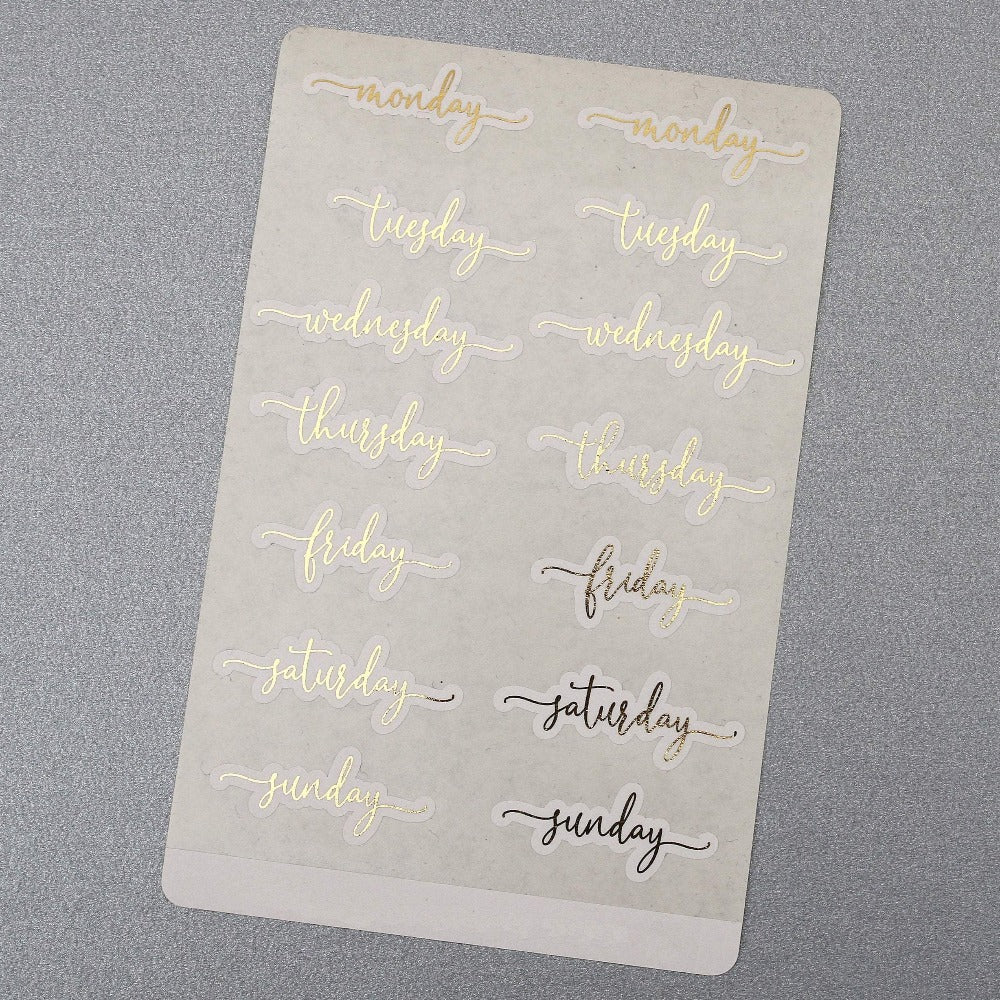 monday monday
tuesday tuesday
wednesday wednesday
thursday thursday
friday friday
saturday saturday
sunday sunday